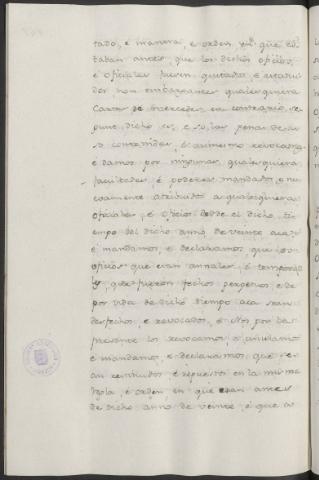 tado, e manera, e orden que es-
taban antes que los dichos oficios,
e oficiales fuesen quitados, e
dos non embargante quales quiera
Cartas de mercedes en contrario, se-
punt dicho es, e so las penas de su-
so contenidas, e asimesmo revocamos,
e damos por ningunas quales quiera
facultades, e poderes mandados, e nu-
evamente atribuidos a quales quiera
oficiales, e oficios desde el dicho ti-
empo del dicho anno de veinte acá,
e mandamos, e declaramos que los
oficios que eran annales, e tempora-
les, que fueron fechos perpetuos, e de
por vida de dicho tiempo aca sean
desfechos, e revocados, e Nos por la
presente los revocamos, e anulamos
e mandamos, e declaramos que se-
an restituidos, e repuestos en la misma
regla, e orden en que eran antes
de dicho anno de veinte, e que a